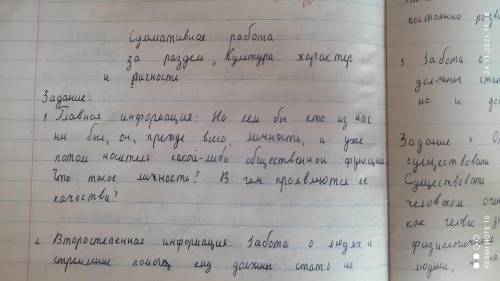 Суммативная работа
за раздел „ Культура: характер
и личности
Задание:
1. Главная информация: Но кем бы кто из нас
ни был, он, прежде всего, личность, а уже
потом носитель какой-либо общественной функции.
Что такое личность? В чем проявляются её
качества?
2. Второстепенная информация: Забота о людях и
стремление помочь ему должны стать не
постоянно
3. Забота
должны
но и
Задание
существовать
Существовать
человеком
как
физиологич
людьми,
REDMI NOTE 10